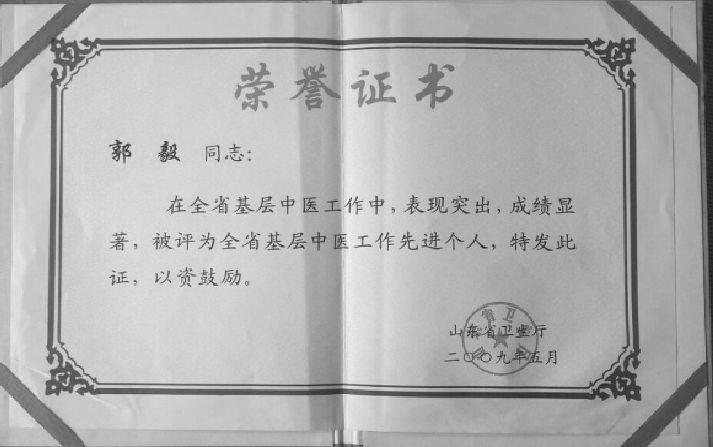 荣誉证书
郭 毅 同志：
在全省基层中医工作中，表现突出，成绩显
著，被评为全省基层中医工作先进个人，特发此
证，以资鼓励。
山东省卫生厅
二〇〇九年五月